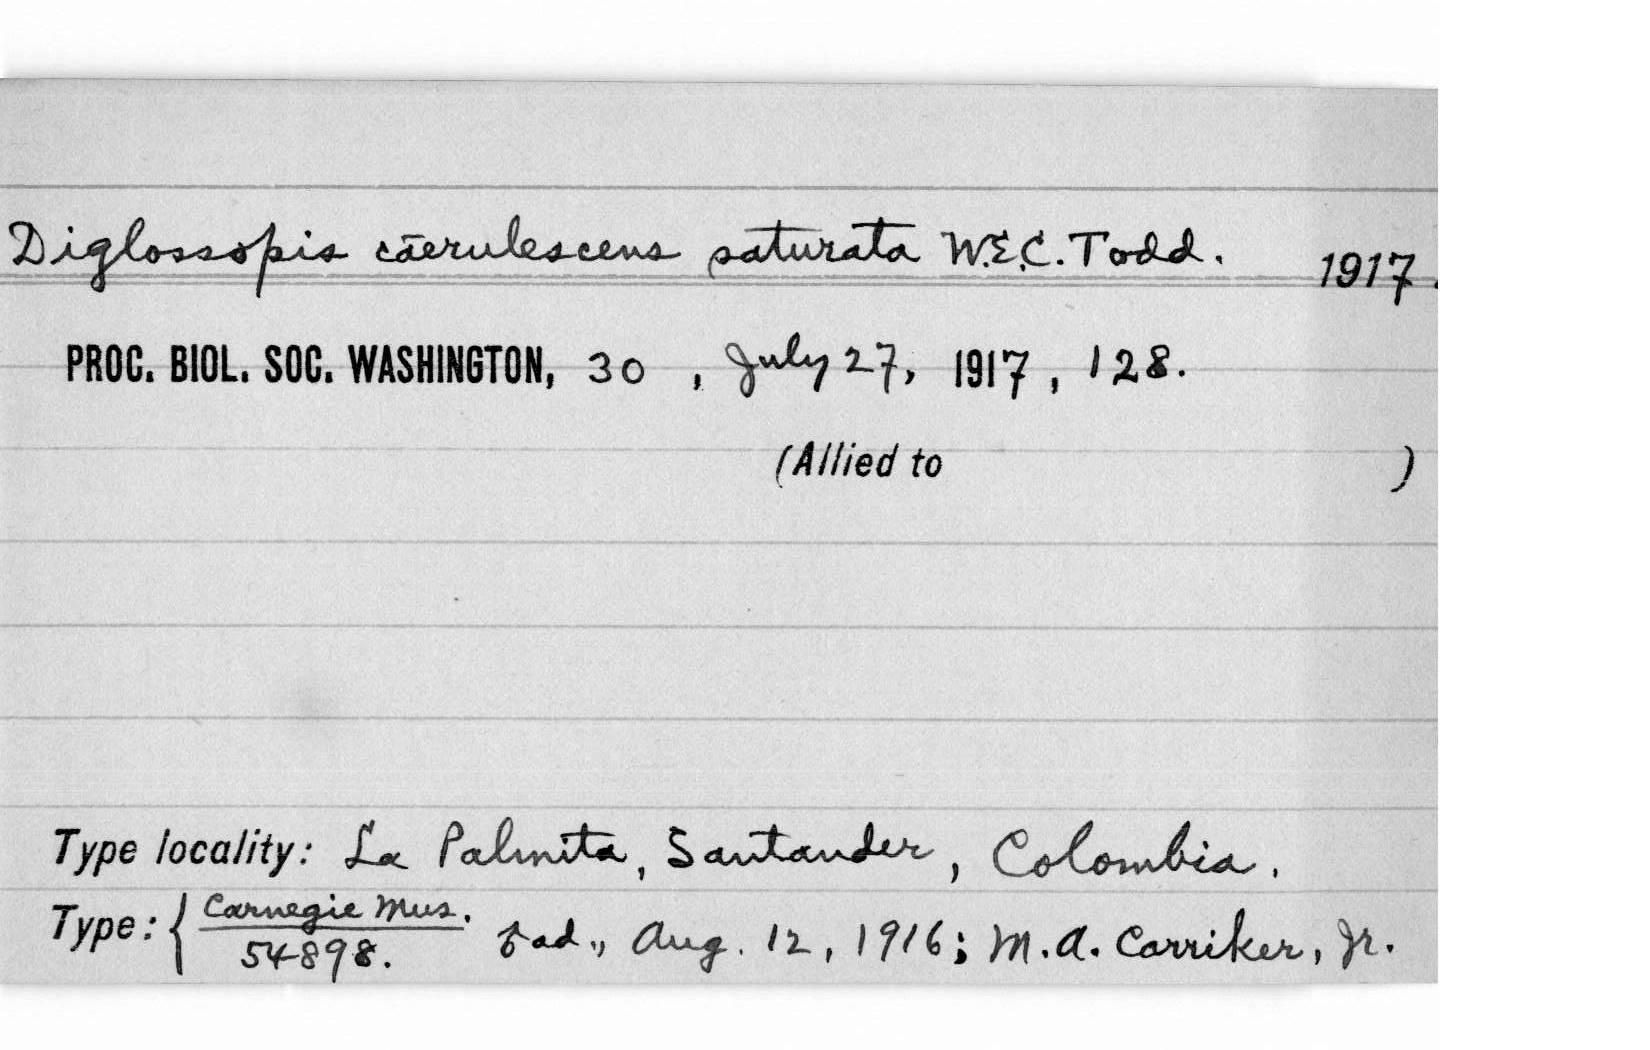 Diglossopis cāerulescens saturata W.E.C. Todd. 1917.
PROC. BIOL. SOC. WASHINGTON, 30 , July 27, 1917 , 128.
(Allied to )
Type locality: La Palmita, Santander, Colombia.
Type: { Carnegie Mus.
54898. ♀ ad., Aug. 12, 1916; M.A. Carriker, Jr.